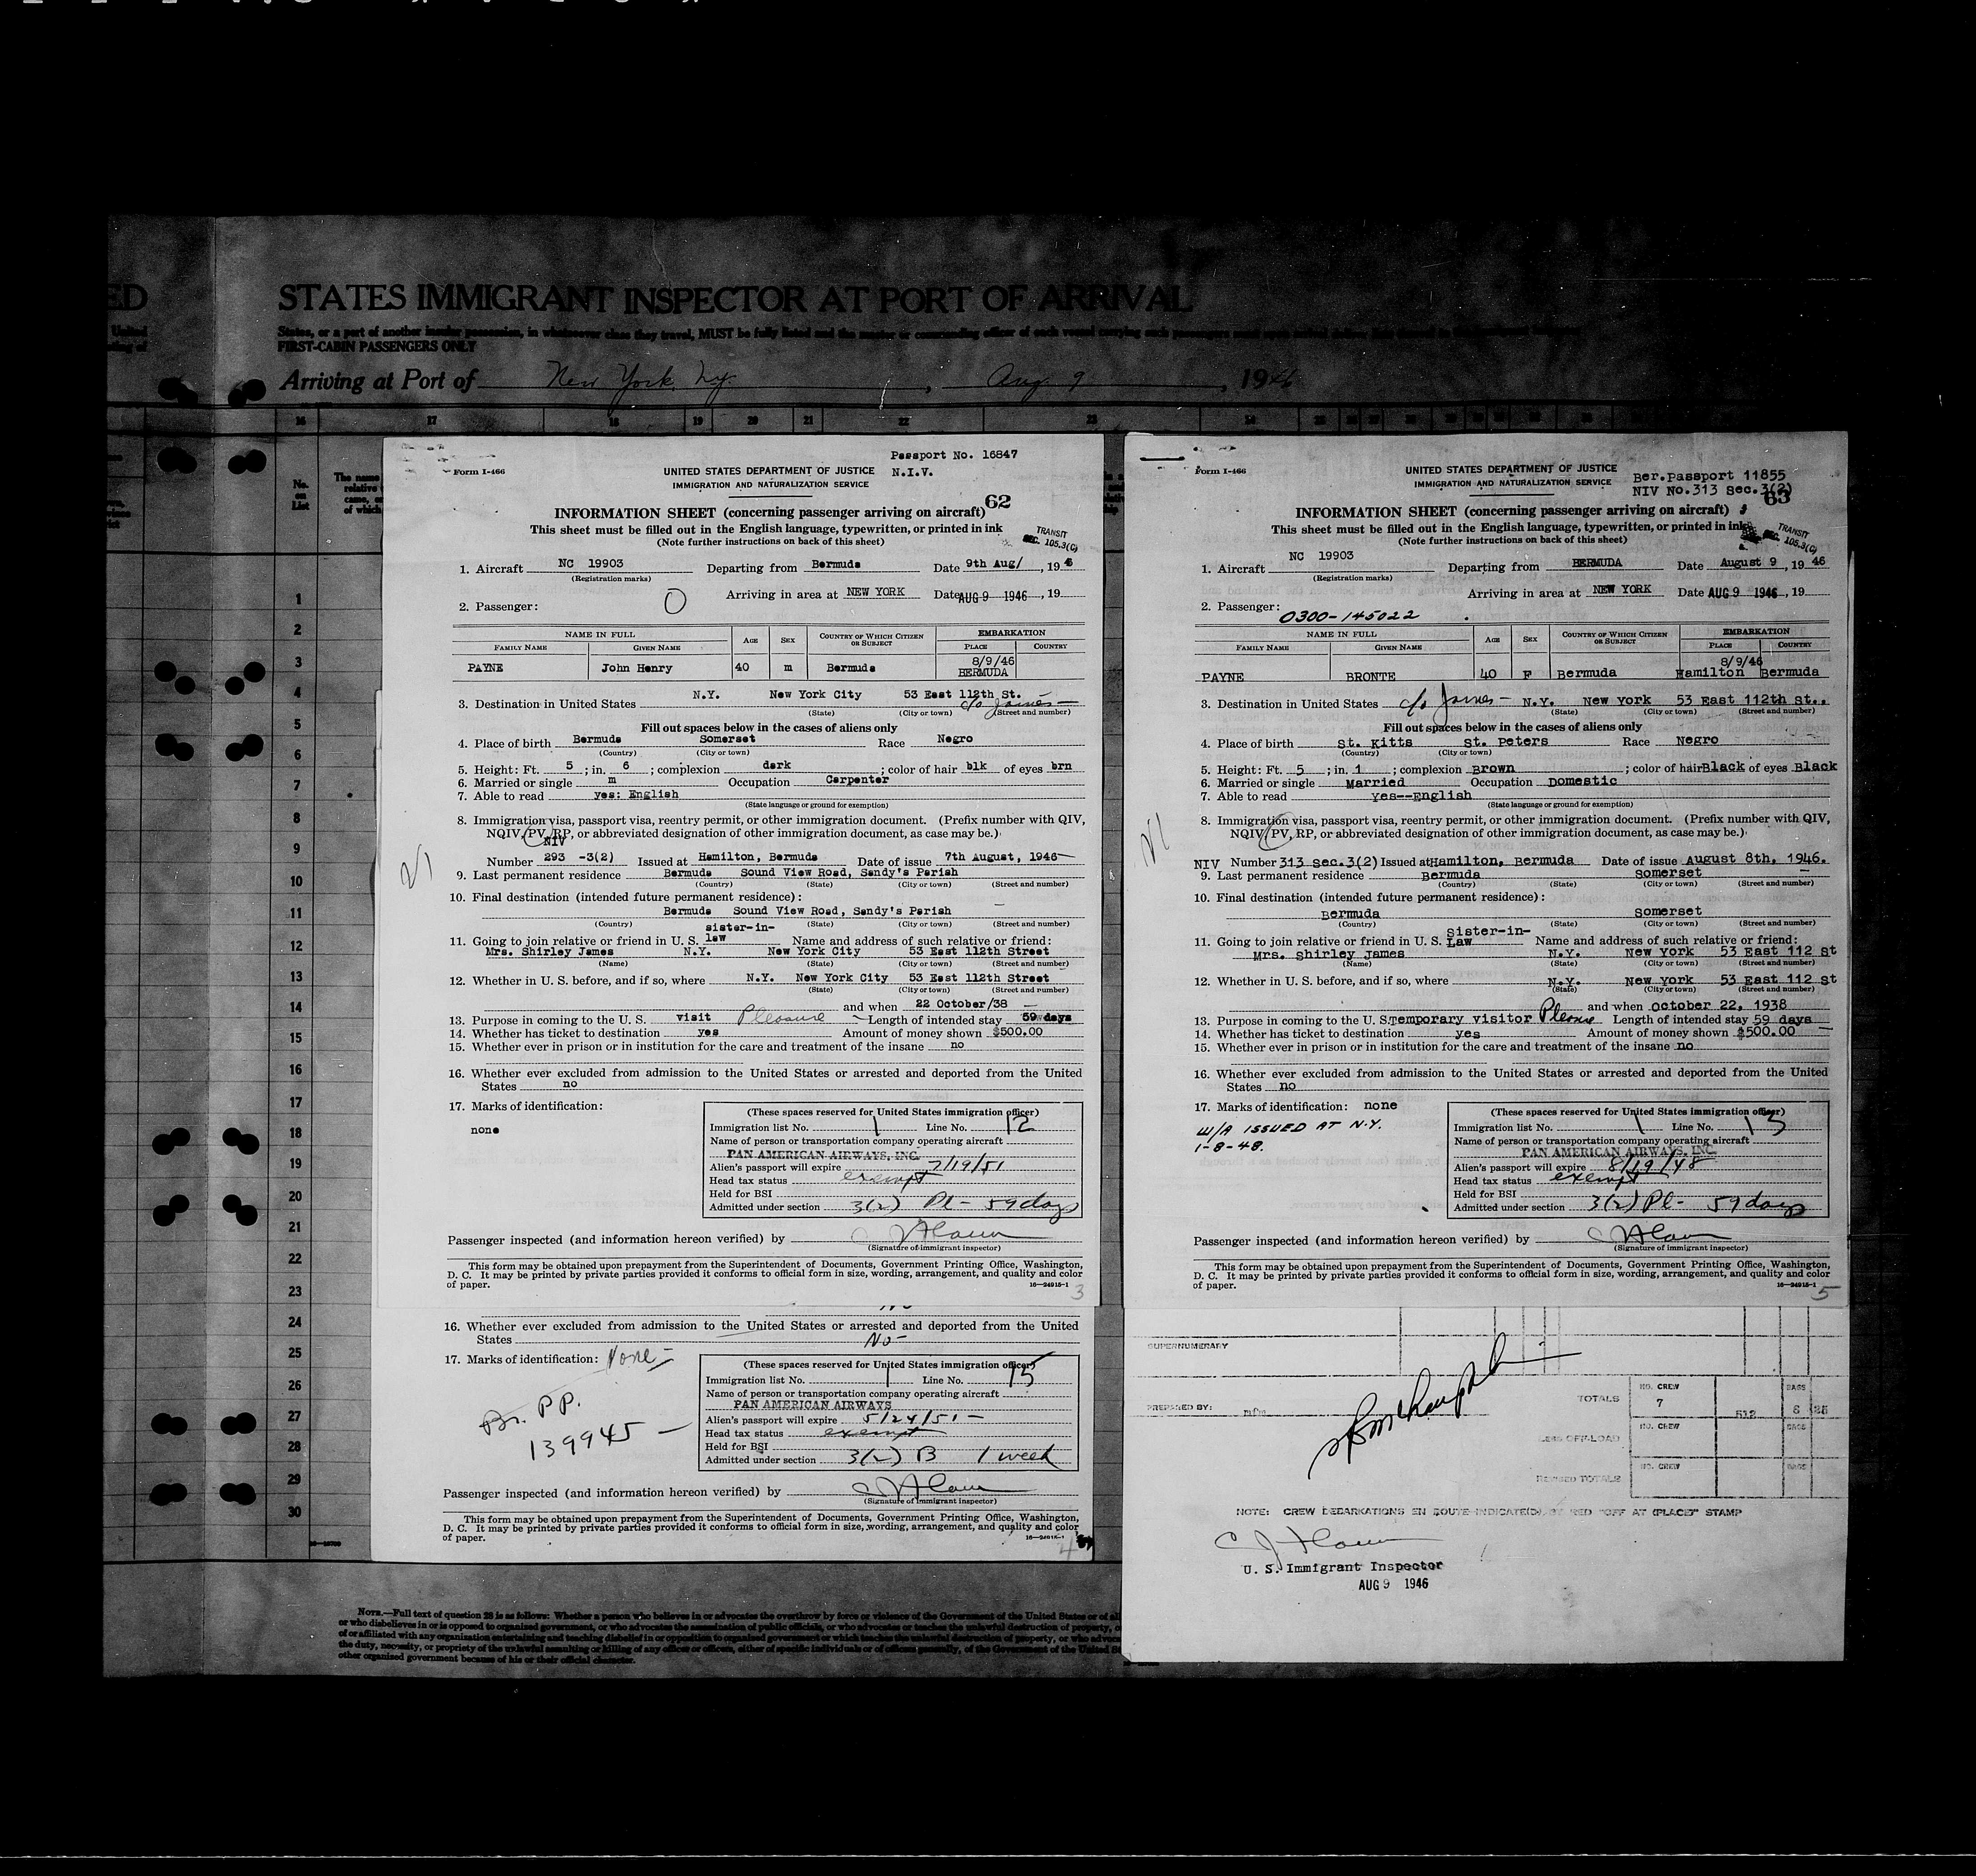 ED
STATES IMMIGRANT INSPECTOR AT PORT OF ARRIVAL
States, or a part of another insular possession, in whatsoever class they travel, MUST be fully listed and the master or commanding officer of each vessel carrying such passengers must upon arrival deliver lists
FIRST-CABIN PASSENGERS ONLY
Arriving at Port of New York, N.Y. , Aug. 9 , 1946
16 17 18 19 20 21 22 23
No. on List
1
2
3
4
5
6
7
8
9
10
11
12
13
14
15
16
17
18
19
20
21
22
23
24
25
26
27
28
29
30
Passport No. 16847
Form I-466
UNITED STATES DEPARTMENT OF JUSTICE N.I.V.
IMMIGRATION AND NATURALIZATION SERVICE
62
INFORMATION SHEET (concerning passenger arriving on aircraft)
This sheet must be filled out in the English language, typewritten, or printed in ink
(Note further instructions on back of this sheet)
TRANSIT
SEC. 105.3(C)
1. Aircraft NC 19903 Departing from Bermuda Date 9th Aug/ , 19 6
(Registration marks)
Arriving in area at NEW YORK Date AUG 9 1946 , 19
2. Passenger:
NAME IN FULL AGE SEX COUNTRY OF WHICH CITIZEN OR SUBJECT EMBARKATION
FAMILY NAME GIVEN NAME PLACE COUNTRY
PAYNE John Henry 40 m Bermuda 8/9/46 BERMUDA
3. Destination in United States N.Y. New York City 53 East 112th St.
c/o James
(State) (City or town) (Street and number)
Fill out spaces below in the cases of aliens only
4. Place of birth Bermuda Somerset Race Negro
(Country) (City or town)
5. Height: Ft. 5 ; in. 6 ; complexion dark ; color of hair blk of eyes brn
6. Married or single m Occupation Carpenter
7. Able to read yes: English
(State language or ground for exemption)
8. Immigration visa, passport visa, reentry permit, or other immigration document. (Prefix number with QIV,
NQIV, PV, RP, or abbreviated designation of other immigration document, as case may be.)
NIV
Number 293 -3(2) Issued at Hamilton, Bermuda Date of issue 7th August, 1946
9. Last permanent residence Bermuda Sound View Road, Sandy's Parish
(Country) (State) (City or town) (Street and number)
10. Final destination (intended future permanent residence):
Bermuda Sound View Road, Sandy's Parish
(Country) (State) (City or town) (Street and number)
11. Going to join relative or friend in U. S. sister-in-law Name and address of such relative or friend:
Mrs. Shirley James N.Y. New York City 53 East 112th Street
(Name) (State) (City or town) (Street and number)
12. Whether in U. S. before, and if so, where N.Y. New York City 53 East 112th Street
(State) (City or town) (Street and number)
and when 22 October/38
13. Purpose in coming to the U. S. visit Pleasure Length of intended stay 59 days
14. Whether has ticket to destination yes Amount of money shown $500.00
15. Whether ever in prison or in institution for the care and treatment of the insane no
16. Whether ever excluded from admission to the United States or arrested and deported from the United
States no
17. Marks of identification:
none
(These spaces reserved for United States immigration officer)
Immigration list No. 1 Line No. 12
Name of person or transportation company operating aircraft
PAN AMERICAN AIRWAYS, INC.
Alien's passport will expire 7/19/51
Head tax status exempt
Held for BSI
Admitted under section 3(2) Pl - 59 days
Passenger inspected (and information hereon verified) by
(Signature of immigrant inspector)
This form may be obtained upon prepayment from the Superintendent of Documents, Government Printing Office, Washington,
D. C. It may be printed by private parties provided it conforms to official form in size, wording, arrangement, and quality and color
of paper. 16—24915-1
3
16. Whether ever excluded from admission to the United States or arrested and deported from the United
States No
17. Marks of identification: None
Br. PP.
139945
(These spaces reserved for United States immigration officer)
Immigration list No. 1 Line No. 15
Name of person or transportation company operating aircraft
PAN AMERICAN AIRWAYS
Alien's passport will expire 5/24/51
Head tax status exempt
Held for BSI
Admitted under section 3(2) B 1 week
Passenger inspected (and information hereon verified) by
(Signature of immigrant inspector)
This form may be obtained upon prepayment from the Superintendent of Documents, Government Printing Office, Washington,
D. C. It may be printed by private parties provided it conforms to official form in size, wording, arrangement, and quality and color
of paper. 16—24915-1
4
Form I-466
UNITED STATES DEPARTMENT OF JUSTICE
IMMIGRATION AND NATURALIZATION SERVICE
Ber.Passport 11855
NIV No.313 Sec.3(2)
63
INFORMATION SHEET (concerning passenger arriving on aircraft)
This sheet must be filled out in the English language, typewritten, or printed in ink
(Note further instructions on back of this sheet)
TRANSIT
SEC. 105.3(C)
1. Aircraft NC 19903 Departing from BERMUDA Date August 9 , 19 46
(Registration marks)
Arriving in area at NEW YORK Date AUG 9 1946 , 19
2. Passenger:
0300-145022
NAME IN FULL AGE SEX COUNTRY OF WHICH CITIZEN OR SUBJECT EMBARKATION
FAMILY NAME GIVEN NAME PLACE COUNTRY
PAYNE BRONTE 40 F Bermuda 8/9/46 Hamilton Bermuda
3. Destination in United States c/o James - N.Y. New York 53 East 112th St..
(State) (City or town) (Street and number)
Fill out spaces below in the cases of aliens only
4. Place of birth St. Kitts St. Peters Race Negro
(Country) (City or town)
5. Height: Ft. 5 ; in. 1 ; complexion Brown ; color of hair Black of eyes Black
6. Married or single Married Occupation Domestic
7. Able to read yes--English
(State language or ground for exemption)
8. Immigration visa, passport visa, reentry permit, or other immigration document. (Prefix number with QIV,
NQIV, PV, RP, or abbreviated designation of other immigration document, as case may be.)
NIV Number 313 Sec.3(2) Issued at Hamilton, Bermuda Date of issue August 8th, 1946.
9. Last permanent residence Bermuda Somerset
(Country) (State) (City or town) (Street and number)
10. Final destination (intended future permanent residence):
Bermuda Somerset
(Country) (State) (City or town) (Street and number)
11. Going to join relative or friend in U. S. sister-in-Law Name and address of such relative or friend:
Mrs. Shirley James N.Y. New York 53 East 112 St
(Name) (State) (City or town) (Street and number)
12. Whether in U. S. before, and if so, where N.Y. New York 53 East 112 St
(State) (City or town) (Street and number)
and when October 22, 1938
13. Purpose in coming to the U. S. Temporary visitor Length of intended stay 59 days
14. Whether has ticket to destination yes Amount of money shown $500.00
15. Whether ever in prison or in institution for the care and treatment of the insane no
16. Whether ever excluded from admission to the United States or arrested and deported from the United
States no
17. Marks of identification: none
W/A ISSUED AT N.Y.
1-8-48.
(These spaces reserved for United States immigration officer)
Immigration list No. 1 Line No. 13
Name of person or transportation company operating aircraft
PAN AMERICAN AIRWAYS, INC.
Alien's passport will expire 8/19/48
Head tax status exempt
Held for BSI
Admitted under section 3(2) Pl - 59 days
Passenger inspected (and information hereon verified) by
(Signature of immigrant inspector)
This form may be obtained upon prepayment from the Superintendent of Documents, Government Printing Office, Washington,
D. C. It may be printed by private parties provided it conforms to official form in size, wording, arrangement, and quality and color
of paper. 16—24915-1
5
SUPERNUMERARY
PREPARED BY: mfm
TOTALS NO. CREW 7 512 BAGS 8
LESS OFF-LOAD NO. CREW BAGS
REVISED TOTALS NO. CREW BAGS
NOTE: CREW DEBARKATIONS EN ROUTE INDICATE(D) BY RED "OFF AT (PLACE)" STAMP
U. S. Immigrant Inspector
AUG 9 1946
NOTE.—Full text of question 28 is as follows: Whether a person who believes in or advocates the overthrow by force or violence of the Government of the United States or of all
or who disbelieves in or is opposed to organized government, or who advocates the assassination of public officials, or who advocates or teaches the unlawful destruction of property,
of or affiliated with any organization entertaining and teaching disbelief in or opposition to organized government or which teaches the unlawful destruction of property, or who
the duty, necessity, or propriety of the unlawful assaulting or killing of any officer or officers, either of specific individuals or of officers generally, of the Government of the United
other organized government because of his or their official character.